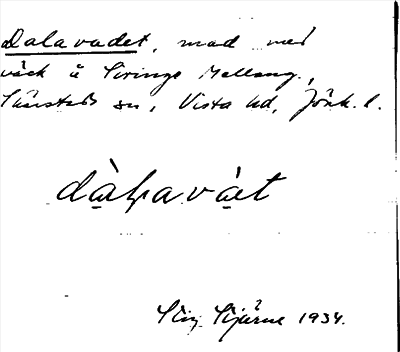 Dalavadet, mad med
väck å Siringe Mellang.,
Skärstads sn, Vista hd, Jönk. l.
dàl̥avàet
Stig Stjärne 1934.